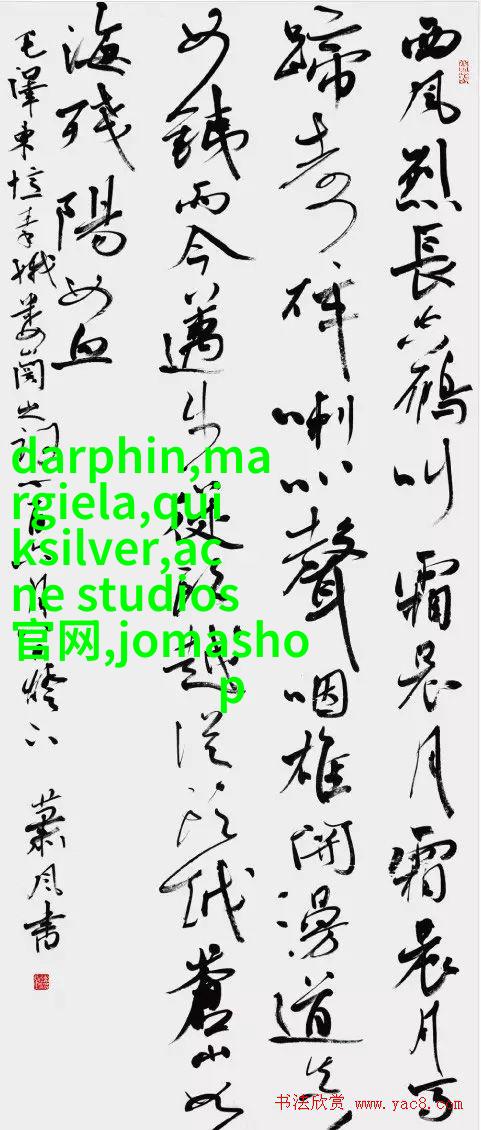 西风烈長空鴈叫霜晨月霜晨月马
蹄声碎喇叭聲咽雄関漫道真
如鐵而今邁步從頭越從頭越蒼山如
海残陽如血
毛澤東憶秦娥娄山関之詞一首燈下
蕭风书
darphin,ma
rgiela,qui
ksilver,ac
ne studios
官网,jomasho
p
书法欣赏 www.yac8.com